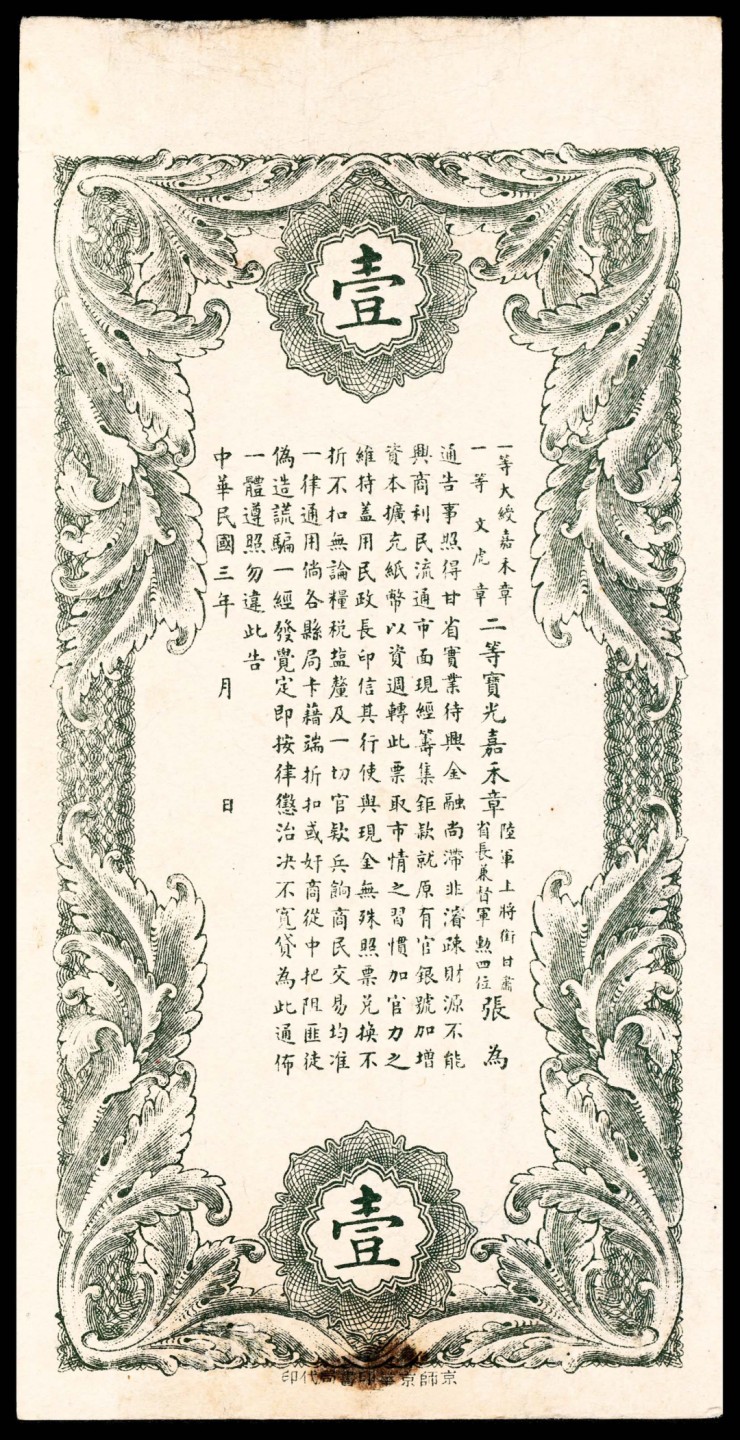 壹
一等大綬嘉禾章
一等文虎章
二等寶光嘉禾章
陸軍上將銜甘肅
省長兼督軍勲四位
張為
通告事照得甘省實業待興金融尚滯非濬疎財源不能
興商利民流通市面現經籌集鉅欵就原有官銀號加增
資本擴充紙幣以資週轉此票取市情之習慣加官力之
維持盖用民政長印信其行使與現金無殊照票兌換不
折不扣無論糧税塩釐及一切官欵兵餉商民交易均准
一律通用倘各縣局卡藉端折扣或奸商從中把阻匪徒
偽造謊騙一經發覺定即按律懲治决不寛貸為此通佈
一體遵照勿違此告
中華民國三年 月 日
壹
京師京華印書局代印